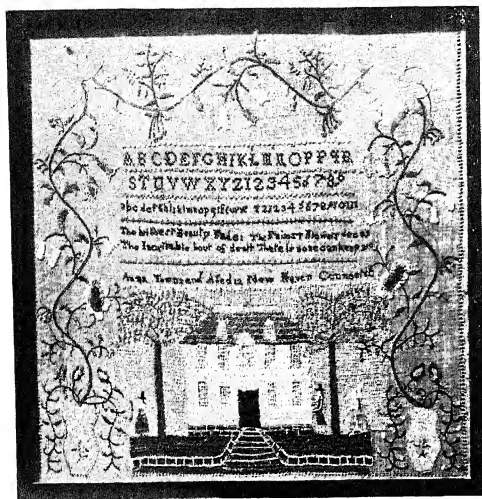 ABCDEFGHIKLMNOPPQR
STUVWXYZ123456789
abcdefghiklmnopqrstuvwxyz1234567891011
The brightest Beauty Fades The Fairest Flower decay
The Inevitable hour of death There is none can keep away
Anna Townsend Aged 12 New Haven Connecticut